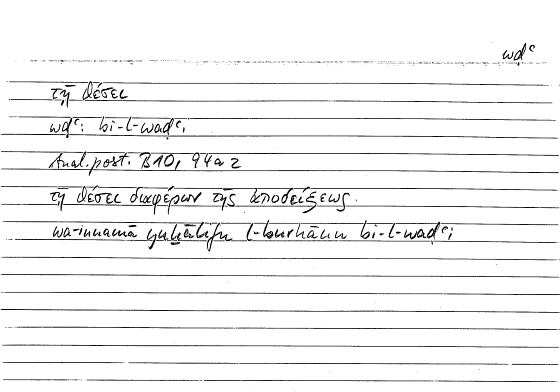 wḍᶜ
τῇ θέσει
wḍᶜ: bi-l-waḍᶜi
Anal. post. B10, 94a2
τῇ θέσει διαφέρων τῆς ἀποδείξεως.
wa-innamā yuḫālifu l-burhānu bi-l-waḍᶜi